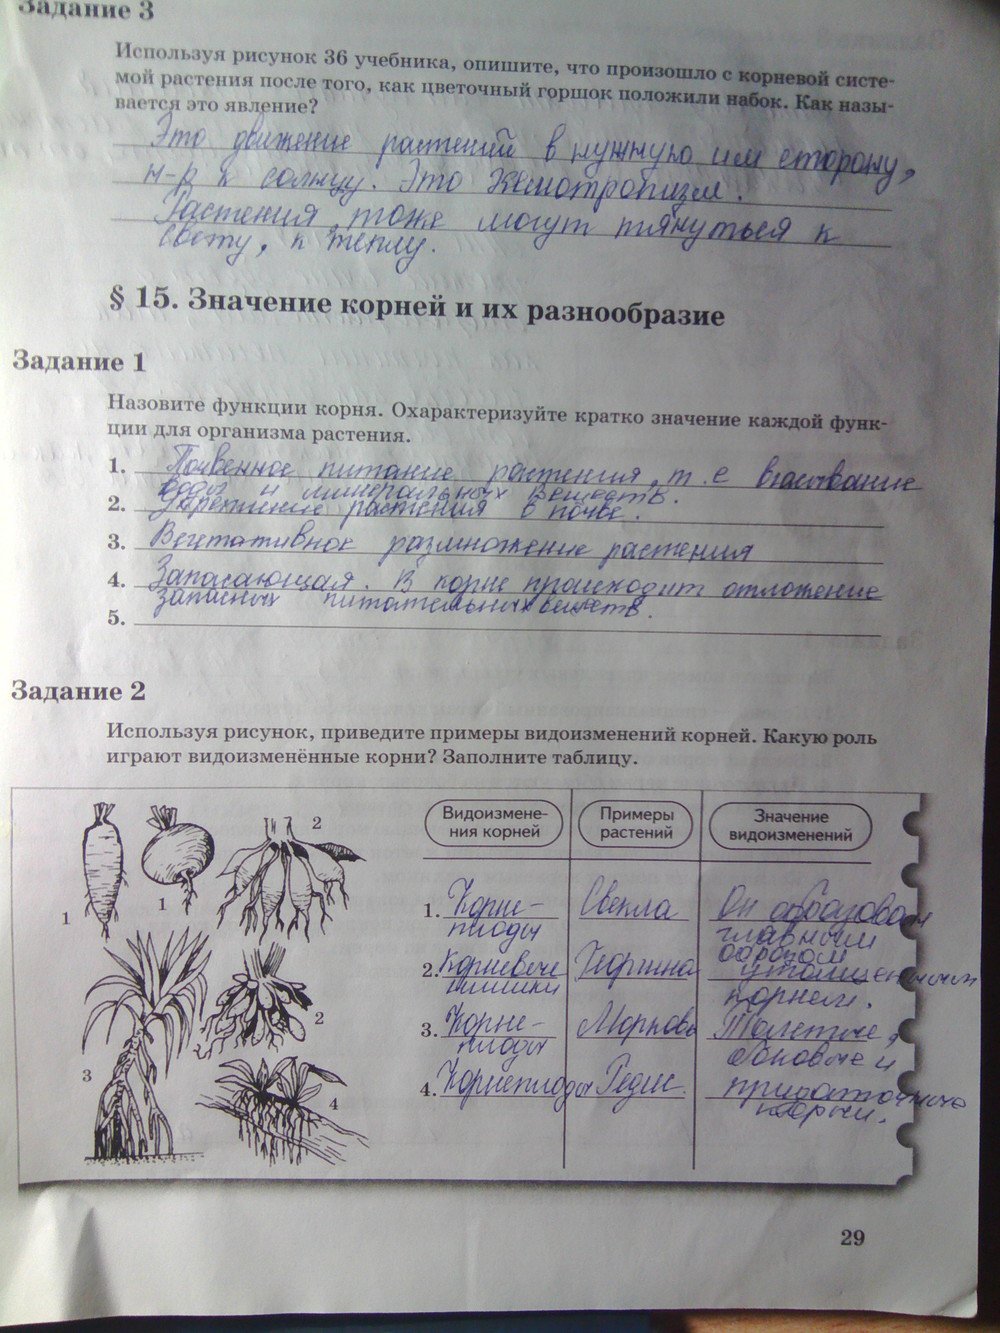 Задание 3
Используя рисунок 36 учебника, опишите, что произошло с корневой систе-
мой растения после того, как цветочный горшок положили набок. Как назы-
вается это явление?
Это движение растений в нужную им сторону,
н-р к солнцу. Это
Растения тоже могут тянуться к
свету, к теплу.
§ 15. Значение корней и их разнообразие
Задание 1
Назовите функции корня. Охарактеризуйте кратко значение каждой функ-
ции для организма растения.
1. Почвенное питание растения, т.е всасывание
воды и минеральных веществ.
2. Укрепление растения в почве.
3. Вегетативное размножение растения
4. Запасающая. В корне происходит отложение
запасных питательных веществ.
5.
Задание 2
Используя рисунок, приведите примеры видоизменений корней. Какую роль
играют видоизменённые корни? Заполните таблицу.
Видоизмене-
ния корней
Примеры
растений
Значение
видоизменений
1. Корне-
плоды
Свекла
Он образован
главным
образом
утолщенным
корнем.
2. Корневые
шишки
Георгина
3. Корне-
плоды
Морковь
Толстые,
боковые и
придаточные
корни.
4. Корнеплоды
Редис
1
1
2
2
3
4
29